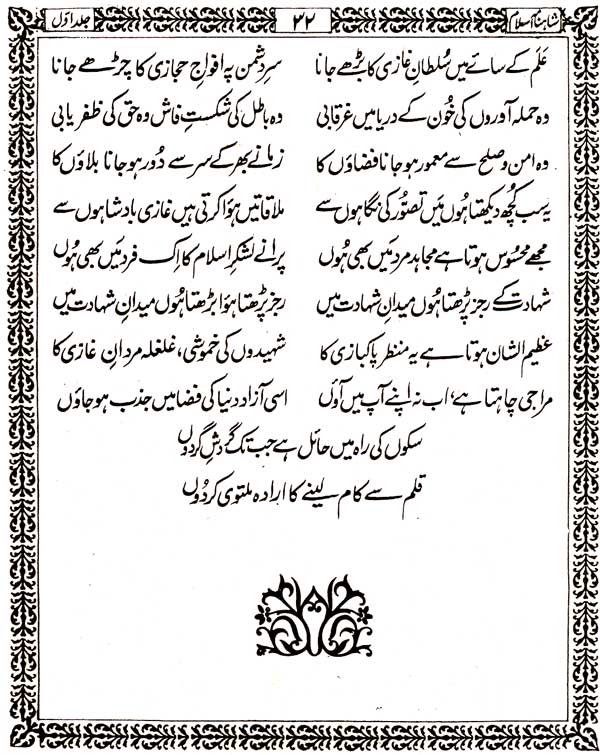 شاہنامہ اسلام ۲۲ جلد اوّل
عَلَم کے سائے میں سُلطانِ غازی کا بڑھے جانا سرِ دشمن پہ افواجِ حجازی کا چڑھے جانا
وہ حملہ آوروں کی خُون کے دریا میں غرقابی وہ باطل کی شکستِ فاش وہ حق کی ظفر یابی
وہ امن و صلح سے معمور ہو جانا فضاؤں کا زمانے بھر کے سر سے دُور ہو جانا بلاؤں کا
یہ سب کُچھ دیکھتا ہُوں مَیں تصوّر کی نگاہوں سے ملاقاتیں ہؤا کرتی ہیں غازی بادشاہوں سے
مجھے محسُوس ہوتا ہے مجاہد مرد مَیں بھی ہُوں پرانے لشکرِ اسلام کا اِک فرد مَیں بھی ہُوں
شہادت کے رجز پڑھتا ہُوں میدانِ شہادت میں رجز پڑھتا ہؤا بڑھتا ہُوں میدانِ شہادت میں
عظیم الشان ہوتا ہے یہ منظر پاکبازی کا شہیدوں کی خموشی، غلغلہ مردانِ غازی کا
مرا جی چاہتا ہے، اب نہ اپنے آپ میں آؤں اسی آزاد دنیا کی فضا میں جذب ہو جاؤں
سکوں کی راہ میں حائل ہے جب تک گردشِ گردُوں
قلم سے کام لینے کا ارادہ ملتوی کر دُوں